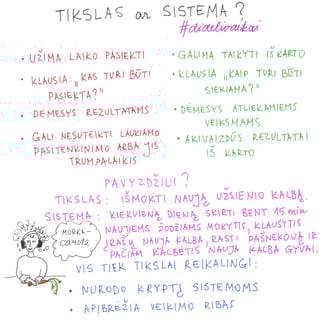 TIKSLAS ar SISTEMA?
#didelivaikai
• UŽIMA LAIKO PASIEKTI
• KLAUSIA: „KAS TURI BŪTI
PASIEKTA?“
• DĖMESYS REZULTATAMS
• GALI NESUTEIKTI LAUKIAMO
PASITENKINIMO ARBA JIS
TRUMPALAIKIS
• GALIMA TAIKYTI IŠKARTO
• KLAUSIA „KAIP TURI BŪTI
SIEKIAMA?“
• DĖMESYS ATLIEKAMIEMS
VEIKSMAMS
• AKIVAIZDŪS REZULTATAI
IŠ KARTO
PAVYZDŽIUI?
TIKSLAS: IŠMOKTI NAUJĄ UŽSIENIO KALBĄ.
SISTEMA: KIEKVIENĄ DIENĄ SKIRTI BENT 15 min
NAUJIEMS ŽODŽIAMS MOKYTIS, KLAUSYTIS
ĮRAŠŲ NAUJA KALBA, RASTI PAŠNEKOVĄ IR
PAČIAM KALBĖTIS NAUJA KALBA GYVAI.
MORKA-
CAROTA
VIS TIEK TIKSLAI REIKALINGI:
• NURODO KRYPTĮ SISTEMOMS
• APIBRĖŽIA VEIKIMO RIBAS